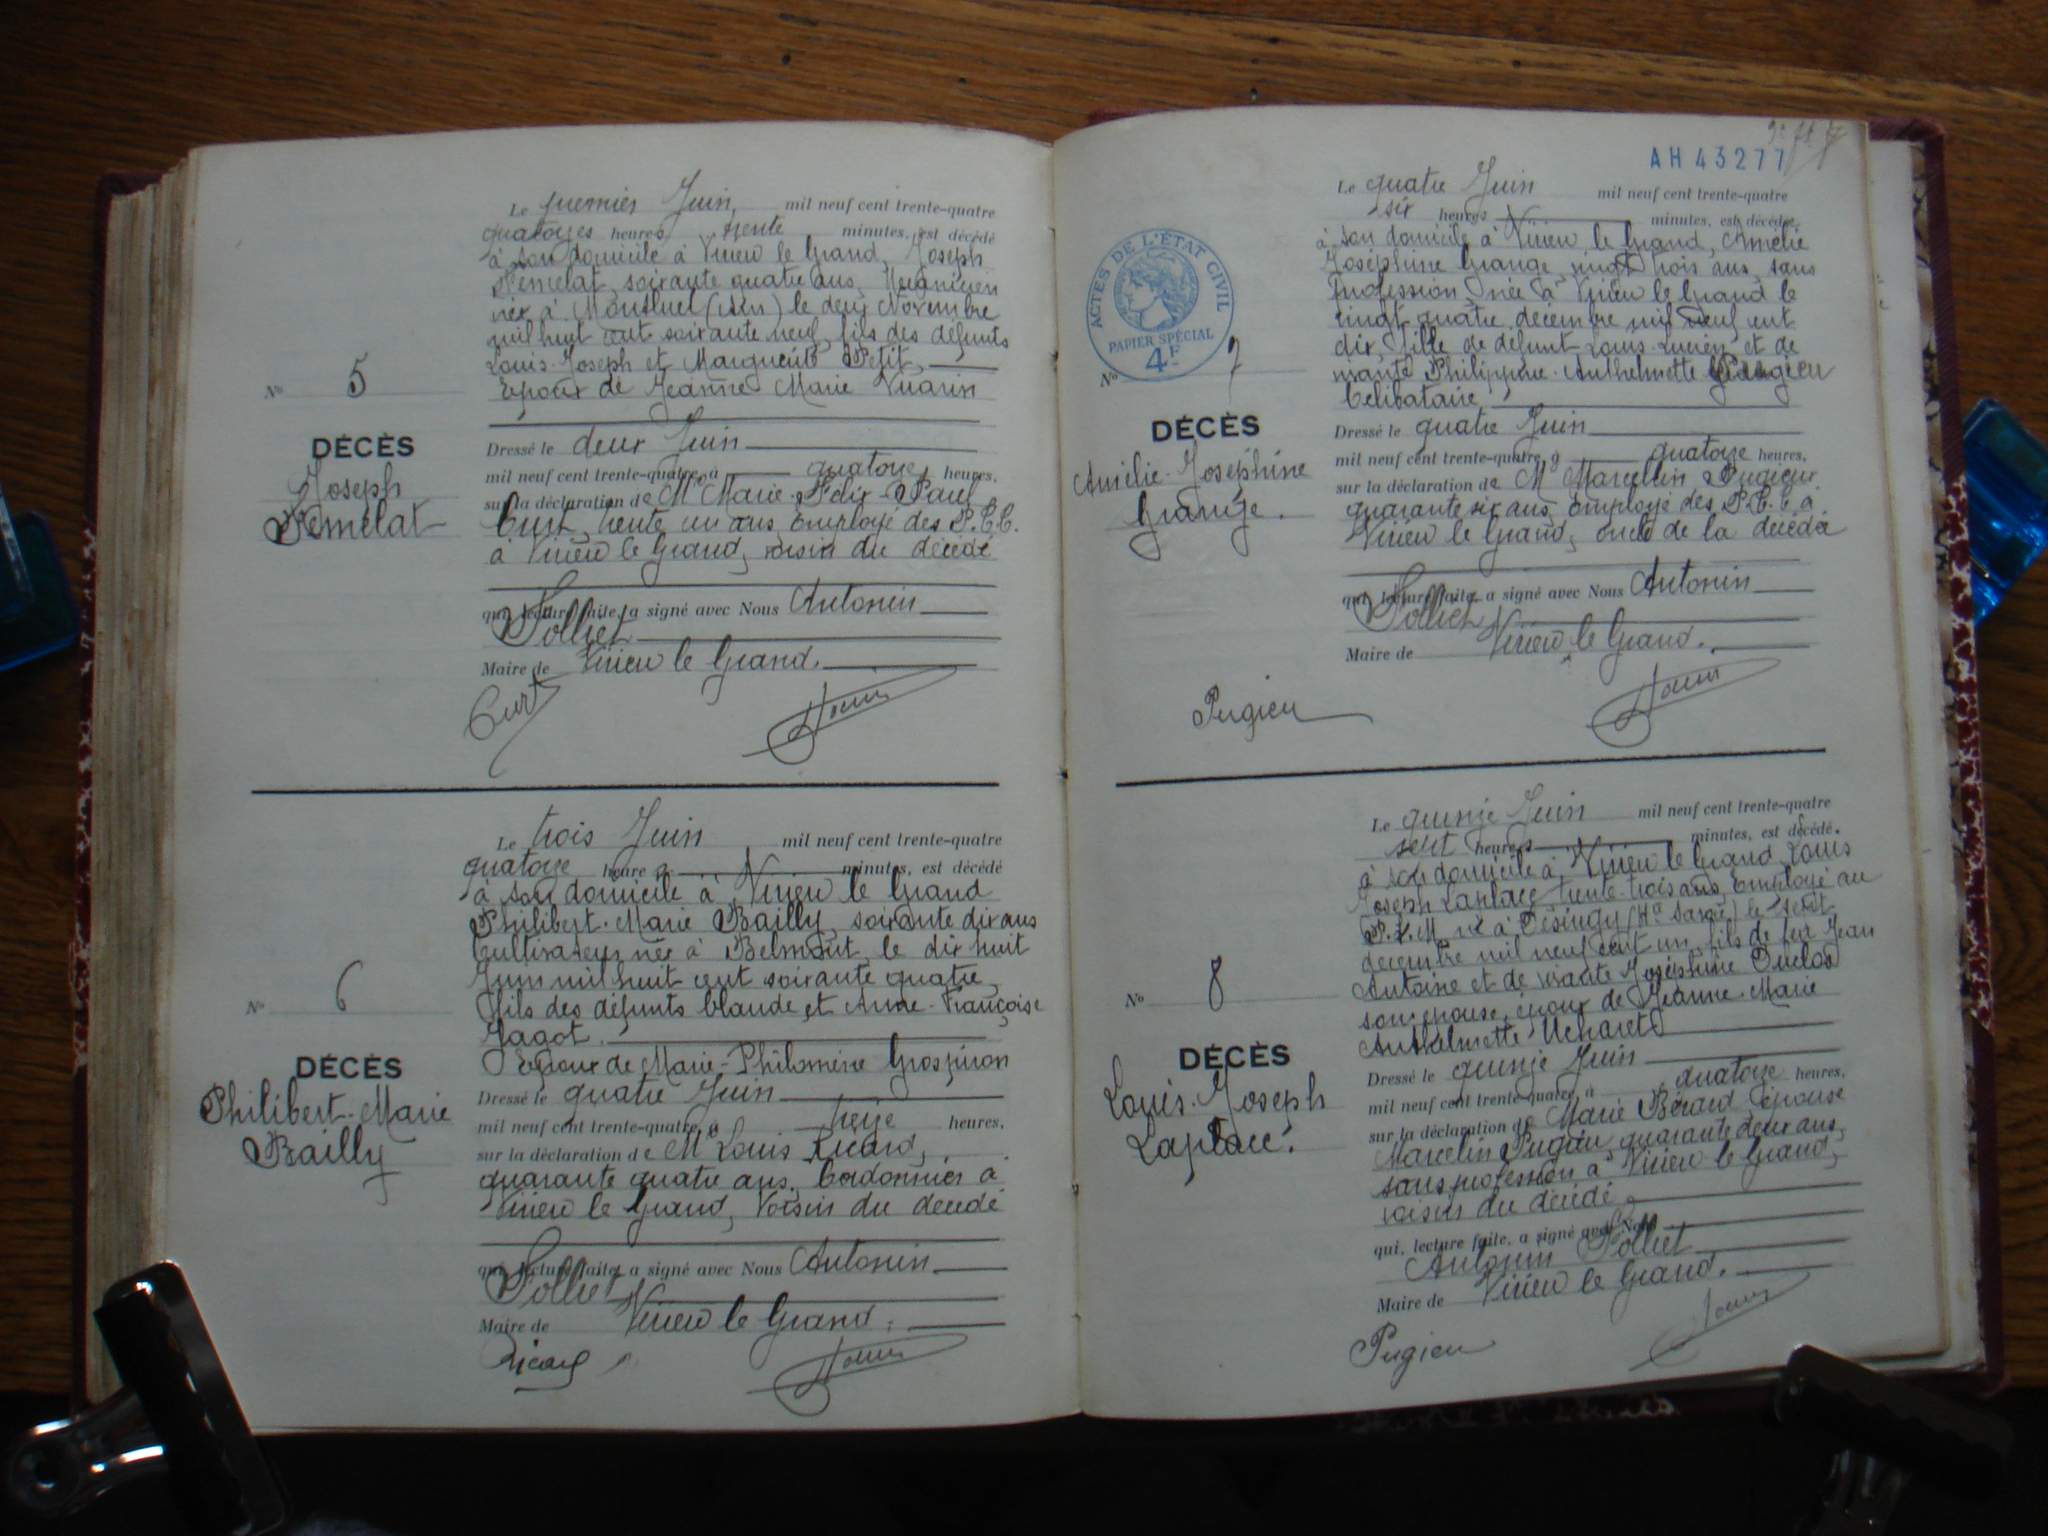 Le premier Juin, mil neuf cent trente-quatre
quatorze heures trente minutes, est décédé
à son domicile à Virieu le Grand, Joseph
Femelat, soixante quatre ans, Mécanicien
née à Montluel (Ain) le deux Novembre
mil huit cent soixante neuf, fils des défunts
Louis-Joseph et Marguerite Petit,
Epoux de Jeanne Marie Vuarin
No 5
DÉCÈS
Joseph
Femélat
Dressé le deux Juin
mil neuf cent trente-quatre, à quatorze heures,
sur la déclaration de Mr Marie-Félix-Paul
Curt, trente un ans, Employé des P.T.T.
à Virieu le Grand, voisin du décédé
qui, lecture faite, a signé avec Nous Antonin
Folliet
Maire de Virieu le Grand.
Curt
Le trois Juin mil neuf cent trente-quatre
quatorze heures minutes, est décédé
à son domicile à Virieu le Grand
Philibert-Marie Bailly, soixante dix ans
Cultivateur née à Belmont, le dix huit
Juin mil huit cent soixante quatre,
fils des défunts Claude et Anne-Françoise
Jagot.
Epoux de Marie-Philomène Grospiron
No 6
DÉCÈS
Philibert-Marie
Bailly
Dressé le quatre Juin
mil neuf cent trente-quatre, à treize heures,
sur la déclaration de Mr Louis Ricard,
quarante quatre ans, Cordonnier à
Virieu le Grand, Voisin du décédé
qui, lecture faite, a signé avec Nous Antonin
Folliet
Maire de Virieu le Grand.
Ricard
AH 43277
Le quatre Juin mil neuf cent trente-quatre
six heures minutes, est décédée
à son domicile à Virieu le Grand, Amélie
Joséphine Grange, vingt trois ans, sans
Profession née à Virieu le Grand le
vingt quatre décembre mil neuf cent
dix, fille de défunt Louis-Lucien et de
vivante Philippine-Anthelmette Pugieu
Celibataire
ACTES DE L'ÉTAT CIVIL
PAPIER SPÉCIAL
4F
No 7
DÉCÈS
Amélie-Joséphine
Grange.
Dressé le quatre Juin
mil neuf cent trente-quatre, à quatorze heures,
sur la déclaration de Mr Marcellin Pugieu
quarante six ans, Employé des P.T.T. à
Virieu le Grand, oncle de la décédée
qui, lecture faite, a signé avec Nous Antonin
Folliet
Maire de Virieu le Grand.
Pugieu
Le quinze Juin mil neuf cent trente-quatre
sept heures minutes, est décédé.
à son domicile à Virieu le Grand, Louis
Joseph Laplace, trente-trois ans, Employé au
P.L.M. né à Désingy (Hte Savoie) le sept
décembre mil neuf cent un, fils de feu Jean
Antoine et de vivante Joséphine Duclos
son épouse, époux de Jeanne-Marie
Anthelmette
No 8
DÉCÈS
Louis-Joseph
Laplace.
Dressé le quinze Juin
mil neuf cent trente-quatre, à quatorze heures,
sur la déclaration de Marie Bérard épouse
Marcelin Pugieu quarante deux ans,
sans profession à Virieu le Grand,
voisin du décédé
qui, lecture faite, a signé avec Nous
Antonin Folliet
Maire de Virieu le Grand.
Pugieu